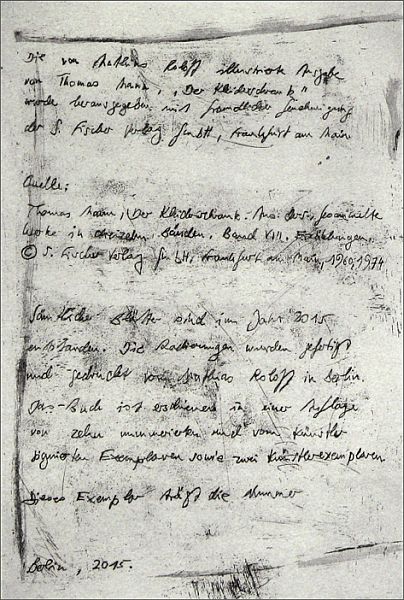 Die von Mathias Roloff illustrierte Ausgabe
von Thomas Mann, „Der Kleiderschrank"
wurde herausgegeben mit freundlicher Genehmigung
der S. Fischer Verlag GmbH, Frankfurt am Main
Quelle:
Thomas Mann, Der Kleiderschrank. Aus ders., Gesammelte
Werke in dreizehn Bänden. Band VIII. Erzählungen.
© S. Fischer Verlag GmbH, Frankfurt am Main, 1960, 1974
Sämtliche Blätter sind im Jahr 2015
entstanden. Die Radierungen wurden gefertigt
und gedruckt von Matthias Roloff in Berlin.
Das Buch ist erschienen in einer Auflage
von zehn nummerierten und vom Künstler
signierten Exemplaren sowie zwei Künstlerexemplaren
Dieses Exemplar trägt die Nummer
Berlin, 2015.